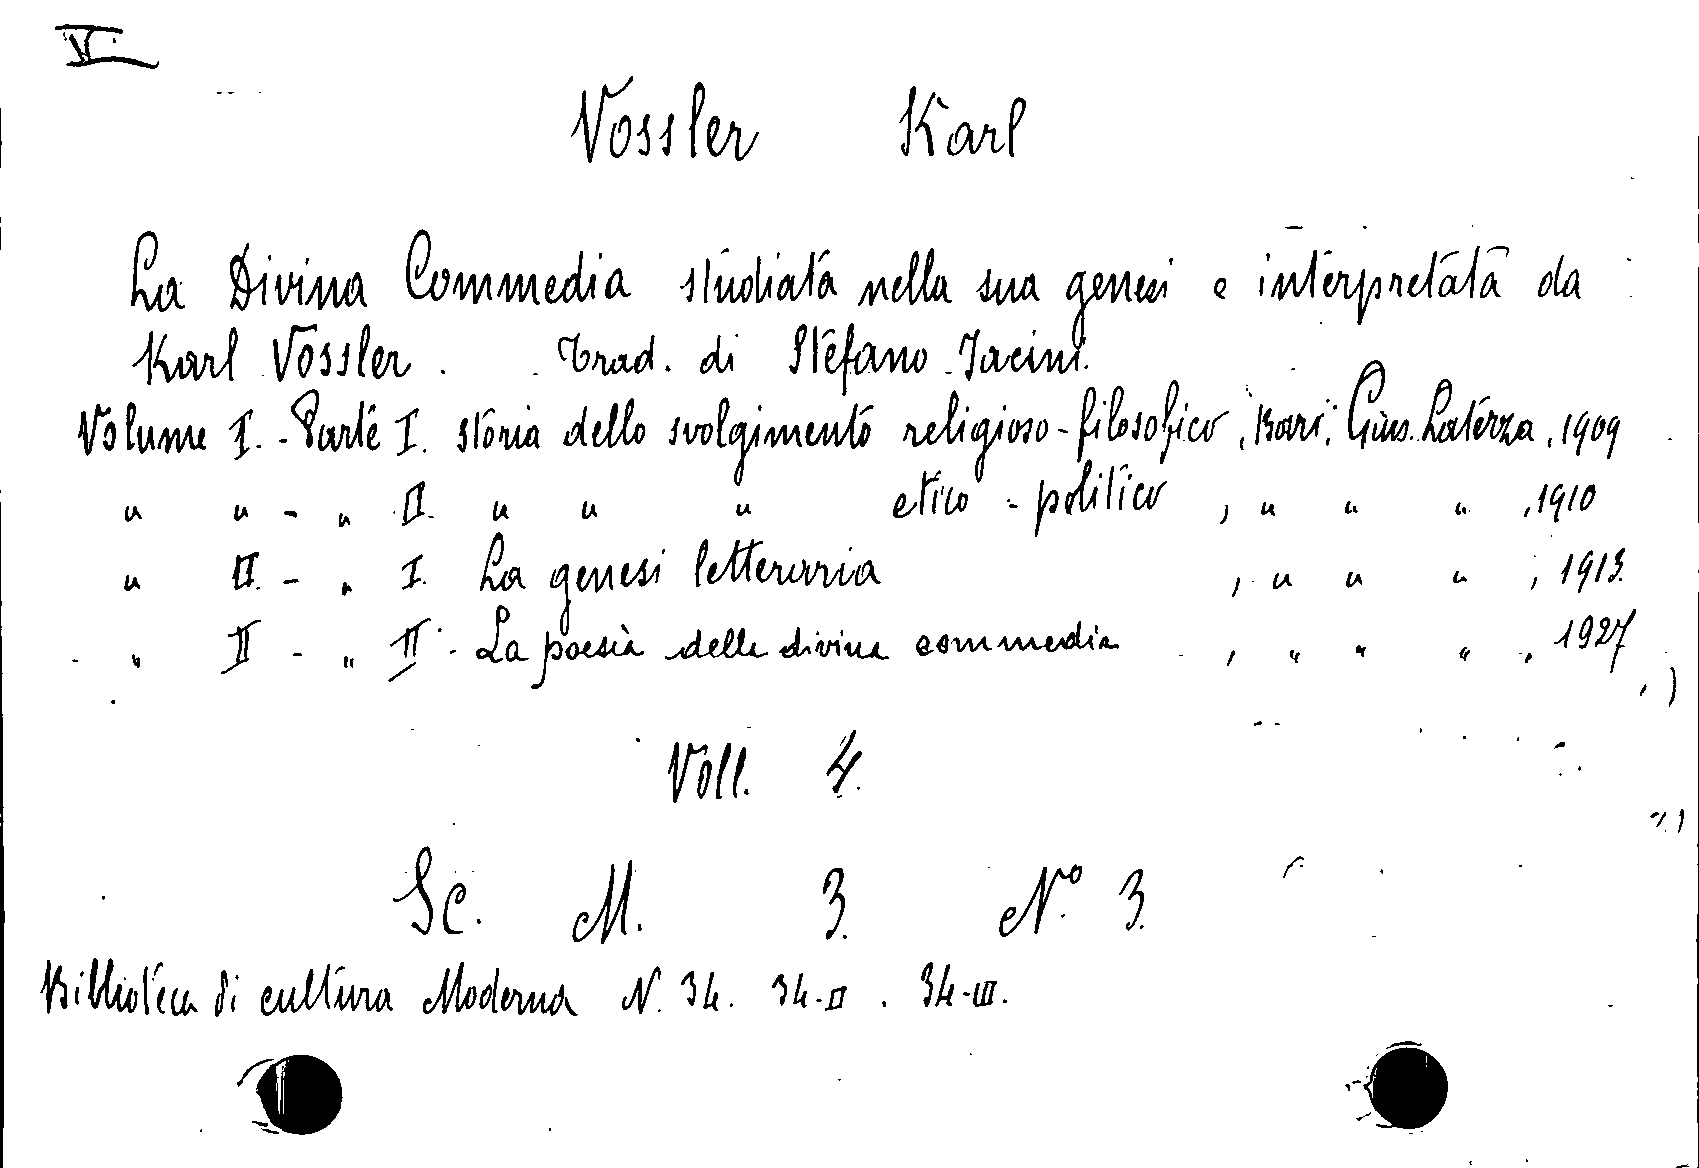 V
Vossler Karl
La Divina Commedia studiata nella sua genesi e interpretata da
Karl Vossler. Trad. di Stefano Jacini.
Volume I. - Parte I. storia dello svolgimento religioso-filosofico, Bari, Gius. Laterza, 1909
" " - " II. " " " etico-politico, " " ", 1910
" II. - " I. La genesi letteraria, " " ", 1913.
" II - " II - La poesia della divina commedia, " " ", 1927
Voll. 4.
Sc. M. 3. N.° 3.
Biblioteca di cultura Moderna N. 34. 34-II. 34-III.